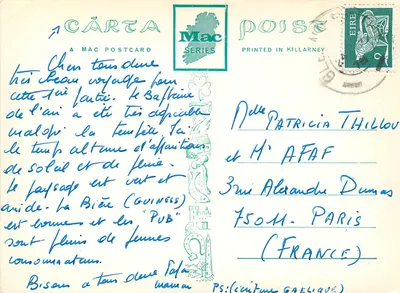 CÁRTA POIST
A MAC POSTCARD
Mac
SERIES
PRINTED IN KILLARNEY
EIRE
9
Chers tous deux
très beau voyage pour
cette 1ère partie. Le Baptême
de l'air a été très agréable
malgré la tempête. Ici
le temps alterne d'apparitions
de soleil et de pluie.
Le paysage est vert et
aride. La Bière (GUINESS)
est bonne et les "PUB"
sont pleins de femmes
consommatrices.
Bisous a tous deux
maman
Melle PATRICIA THILLOU
et Mr AFAF
3 rue Alexandre Dumas
75011 - PARIS
(FRANCE)
PS: (écriture GAELIQUE)